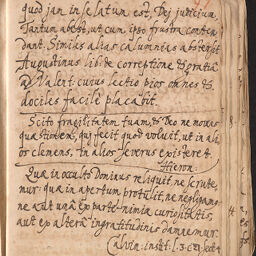 quod jam in se latum est, Dej judicium.
Tantum abest, ut cum ipso frustra conten
dant. Similes alias calumnias abstersit
Augustinus lib. de correptione & gratia
ad Valent. cuius lectio pios omnes &
dociles facile placabit.
Scito fragilitatem tuam, & Deo ne moveas
quaestionem, qui fecit quod voluit, ut in ali
os clemens, In alios severus existeret
Hieron:
Quae in occulto Dominus reliquit ne scrute
mur: quae in apertum protulit, ne negligamus
ne aut una ex parte nimia curiositatis,
aut ex altera ingratitudinis damnemur.
Calvin: instit: l. 3. c. 21. sect. 4